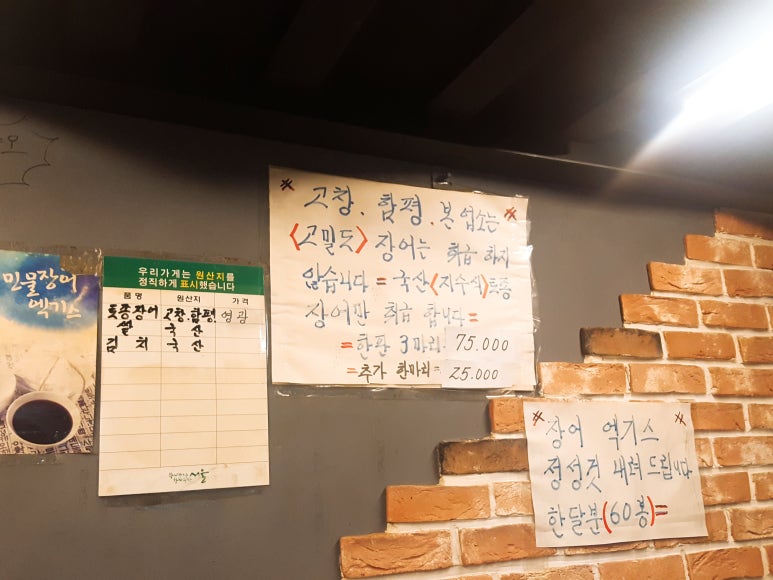 민물장어
엑기스
우리가게는 원산지를
정직하게 표시했습니다
품 명 원산지 가 격
토종장어 고창.함평.영광
쌀 국 산
김 치 국 산
서울
고창. 함평. 본 업소는
<고밀도> 장어는 취급 하지
않습니다 = 국산<지수식>토종
장어만 취급 합니다=
=한판 3마리= 75.000
=추가 한마리= 25.000
장어 엑기스
정성껏 내려 드립니다
한달분(60봉)=